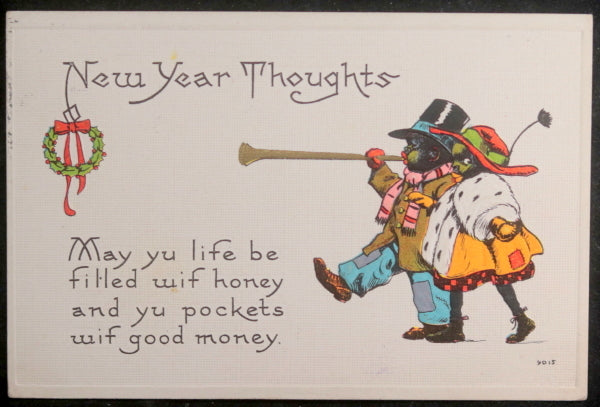 New Year Thoughts
May yu life be
filled wif honey
and yu pockets
wif good money.
9015